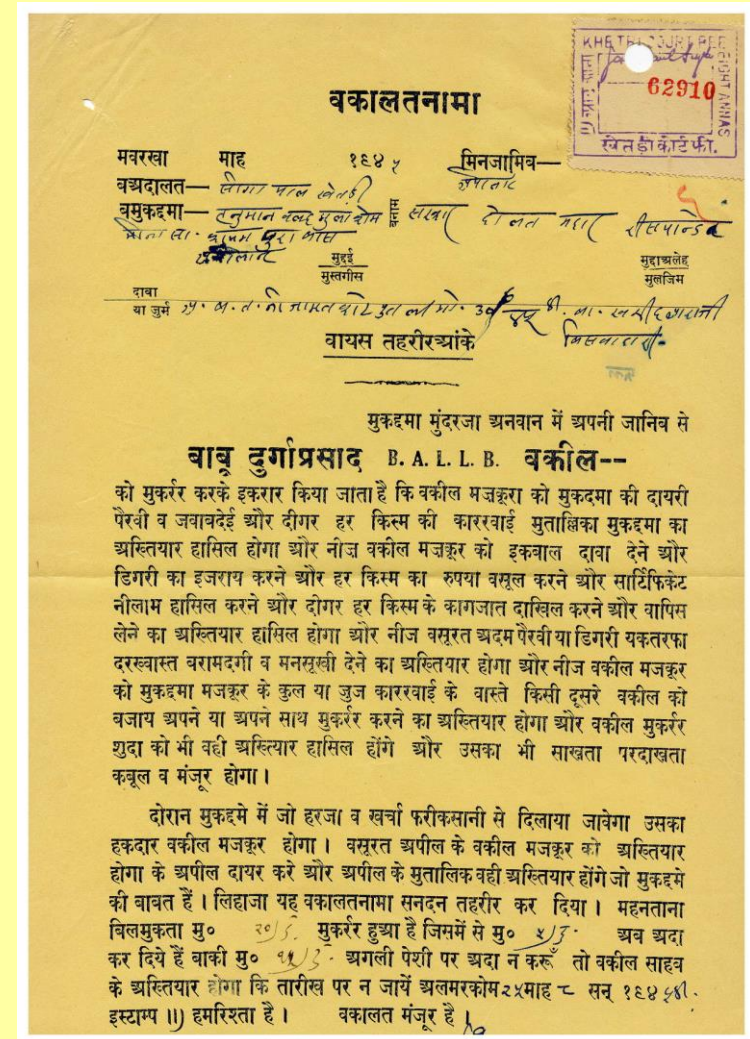 KHETRI COURT FEE
62910
EIGHT ANNAS
खेतड़ी कोर्ट फी.
वकालतनामा
मवरखा माह १९४५ मिनजामिब—
बअदालत—
बमुकद्दमा— हनुमान बनाम दौलत
मुद्दई मुद्दाअलेह
मुस्तगीस मुलजिम
दावा
या जुर्म
वायस तहरीरआंके
मुकद्दमा मुंदरजा अनवान में अपनी जानिव से
बाबू दुर्गाप्रसाद B. A. L. L. B. वकील--
को मुकर्रर करके इकरार किया जाता है कि वकील मजकूरा को मुकदमा की दायरी
पैरवी व जवाबदेई और दीगर हर किस्म की काररवाई मुताल्लिका मुकद्दमा का
अख्तियार हासिल होगा और नीज वकील मजकूर को इकबाल दावा देने और
डिगरी का इजराय करने और हर किस्म का रुपया वसूल करने और सार्टिफिकेट
नीलाम हासिल करने और दीगर हर किस्म के कागजात दाखिल करने और वापिस
लेने का अख्तियार हासिल होगा और नीज वसूरत अदम पैरवी या डिगरी यकतरफा
दरख्वास्त बरामदगी व मनसूखी देने का अख्तियार होगा और नीज वकील मजकूर
को मुकद्दमा मजकूर के कुल या जुज काररवाई के वास्ते किसी दूसरे वकील को
बजाय अपने या अपने साथ मुकर्रर करने का अख्तियार होगा और वकील मुकर्रर
शुदा को भी वही अख्तियार हासिल होंगे और उसका भी साखता परदाखता
कबूल व मंजूर होगा।
दोरान मुकद्दमे में जो हरजा व खर्चा फरीकसानी से दिलाया जावेगा उसका
हकदार वकील मजकूर होगा। वसूरत अपील के वकील मजकूर को अख्तियार
होगा के अपील दायर करे और अपील के मुतालिक वही अख्तियार होंगे जो मुकद्दमे
की बाबत हैं। लिहाजा यह वकालतनामा सनदन तहरीर कर दिया। महनताना
बिलमुकता मु० २०) मुकर्रर हुआ है जिसमें से मु० ५) अब अदा
कर दिये हैं बाकी मु० १५) अगली पेशी पर अदा न करूँ तो वकील साहब
के अख्तियार होगा कि तारीख पर न जायें अलमरकोम २५ माह ८ सन् १९४५
इस्टाम्प ॥) हमरिश्ता है। वकालत मंजूर है।